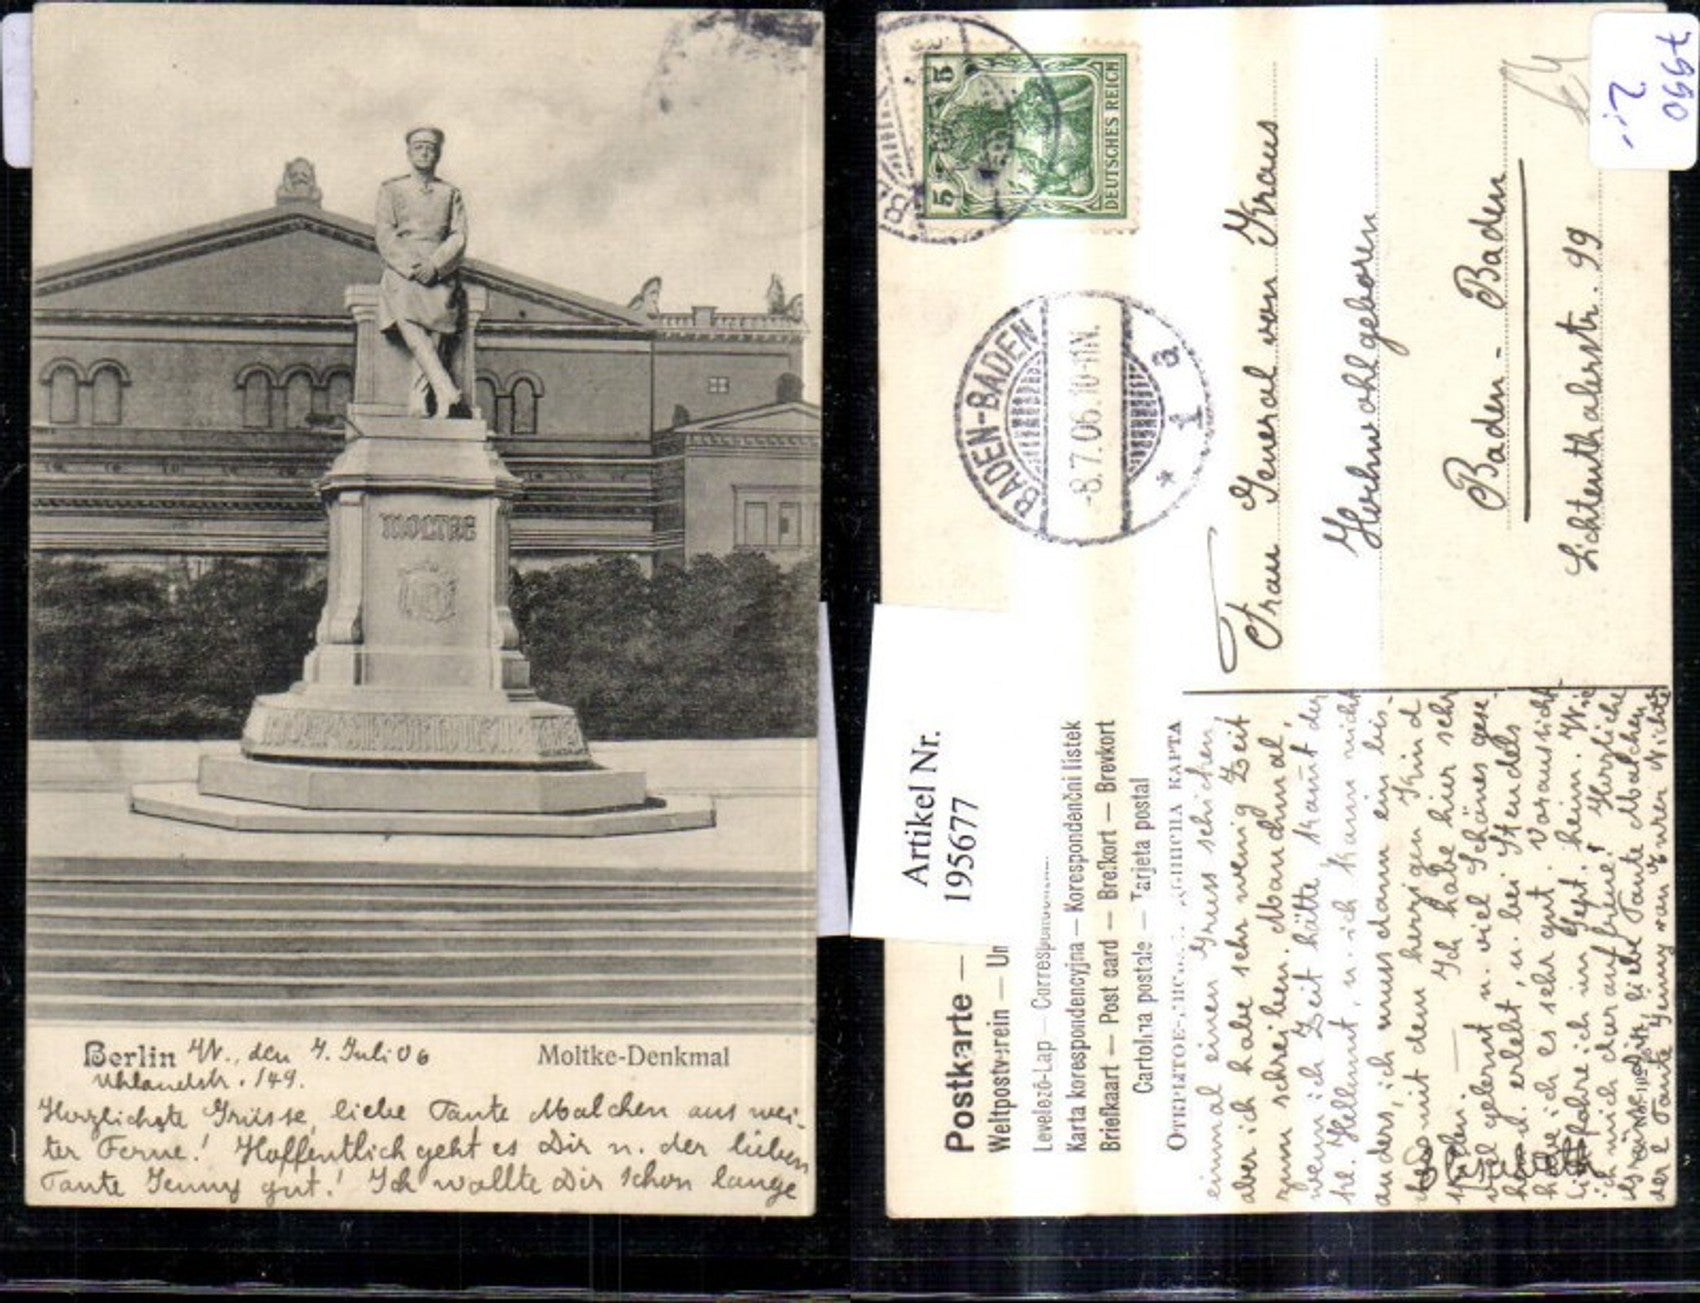 MOLTKE
Berlin W., den 7. Juli 06
Moltke-Denkmal
Uhlandstr. 149.
Herzlichste Grüsse, liebe Tante Malchen aus wei-
ter Ferne! Hoffentlich geht es Dir u. der lieben
Tante Jenny gut! Ich wollte Dir schon lange
5 5
5
DEUTSCHES REICH
BADEN-BADEN
-8.7.06.10-11N.
* 1 a
Frau General von Kraus
Hochwohlgeboren
Baden-Baden
Lichtenthalerstr. 99
7990
Artikel Nr.
195677
Postkarte —
Weltpostverein — Un
Levelező-Lap — Correspon
Karta korespondencyjna — Korespondenční listek
Briefkaart — Post card — Brefkort — Brevkort
Cartolina postale — Tarjeta postal
КАРТА
einmal einen Gruss schicken,
aber ich habe sehr wenig Zeit
zum schreiben. Manchmal,
wenn ich Zeit hätte, kommt der
kl. Hellmut, u. ich kann nicht
anders, ich muss dann ein bis-
mit dem herzigen Kind
Ich habe hier sehr
viel gelernt u. viel Schönes gese-
erlebt, u. bei Stendels
ich es sehr gut. Voraussicht-
fahre ich im Sept. heim. Wie
ich mich darauf freue! Herzliche
Grüsse Dir liebe Tante Malchen
der l Tante Jenny von Eurer Nichte